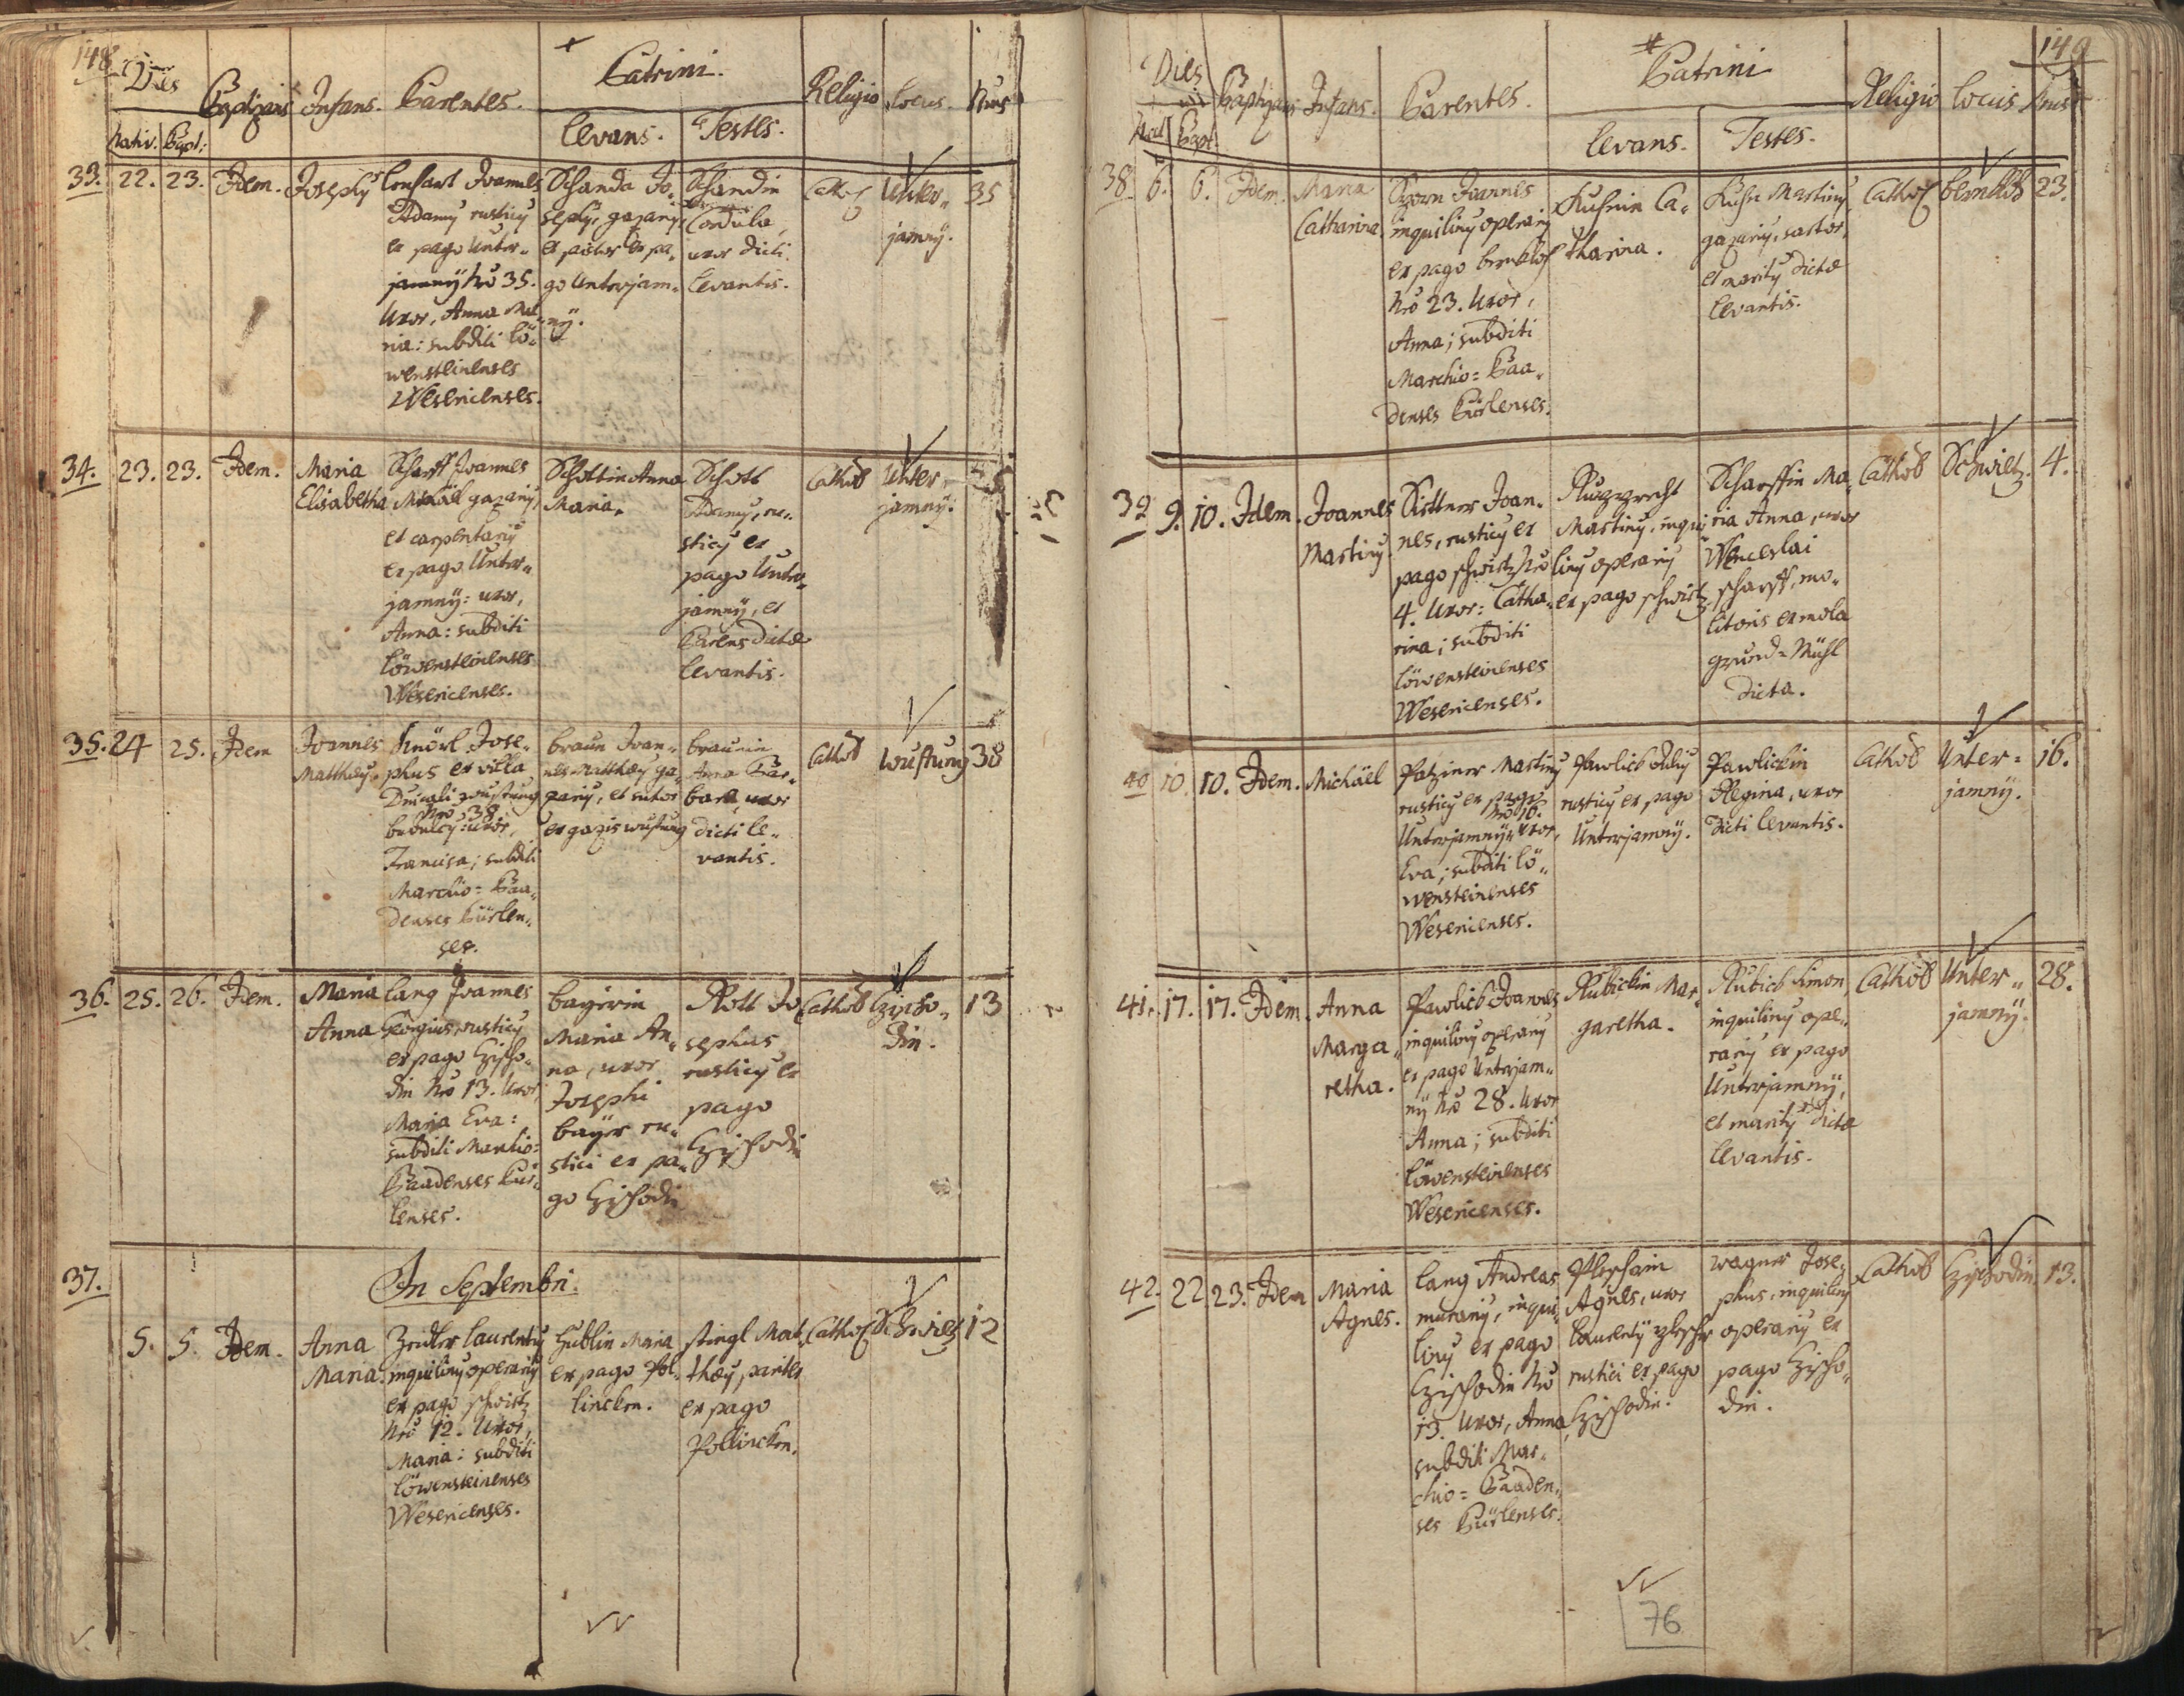 148
Dies
Baptizans Infans. Parentes.
Patrini.
Religio Locus. Nrus
Nativ. Bapt:
Levans. Testes.
33. 22. 23. Idem. Josephy
Joannes
Adamy rusticy
ex pago Unter„
jamnÿ Nro 35.
Uxor, Anna Ma„
ria: subditi Lö„
wensteinenses
Weserienses.
Schanda Jo„
sephy, gazariy,
et pictor ex pa„
go Unterjam„
nÿ.
Schandin
Cordula,
uxor dicti
Levantis.
Unter„
jamnÿ.
35
34. 23. 23. Idem. Maria
Elisabetha
Scharff Joannes
Michäel gazariy,
et carpentariy
ex pago Unter„
jamnÿ: uxor,
Anna: subditi
Löwensteinenses
Weserienses.
Schottin Anna
Maria.
Schott
Adamy, ru„
sticy ex
pago Unter„
jamnÿ, et
Parens dictae
Levantis.
Cathol
Unter„
jamnÿ.
35. 24 25. Idem
Joannes
Matthaey.
Knörl Jose„
phus ex villa
Dnicali wustung
Nro 38
bubulcy: uxor,
Francisca; subditi
Marchio= Baa„
denses Pürlen„
ses.
braun Joan„
nes Matthaey ga„
zariy, et sutor
ex gazis wustung
braunin
Anna Bar„
bara uxor
dicti le„
vantis.
Cathol
Wustung 38
36. 25. 26. Idem.
Maria
Anna
Lang Joannes
Georgius, rusticy
ex pago Czischo„
din Nro 13. Uxor,
Maria Eva:
subditi Marchio=
Baadenses Pür„
lenses.
bayerin
Maria An„
na, uxor
Josephi
baÿer ru„
stici ex pa„
go Czischodin
Roll Jo
sephus
rusticy ex
pago
Czischodin
Cathol
Czischo„
din.
13
37.
In Septembri.
5. 5. Idem.
Anna
Maria.
Zeidler Laurenty
inquiliny operariy
ex pago schwitz
Nro 12. Uxor,
Maria: subditi
Löwensteinenses
Weserienses.
Hüblin Maria
ex pago Pol„
lincken.
Stingl Mat„
thaey, pariter
ex pago
Pollincken.
Cathol
12
149
Dies
Baptizans Infans. Parentes.
Patrini
Religio Locus Nrus
Nat Bapt.
Levans. Testes.
38. 6. 6. Idem. Maria
Catharina.
Joannes
inquiliny operariy
ex pago
Nro 23. Uxor,
Anna; subditi
Marchio= Baa„
denses Pürlenses.
Kuhnin Ca„
tharina.
Kuhn Martiny,
gazariy, sartor,
et marity dictae
Levantis.
Cathol
23.
39 9. 10. Idem. Joannes
Martiny.
Kittner Joan„
nes, rusticy ex
pago schwitz Nro
4. Uxor: Catha„
rina; subditi
Löwensteinenses
Weserienses.
Martiny, inqui„
liny operariy
ex pago schwitz
Scharffin Ma„
ria Anna, uxor
Wenceslai
scharff, mo„
litoris ex mola
grund=Mühl
dicta.
Cathol
Schwitz. 4.
40 10. 10. Idem. Michäel
Patziner Martiny
rusticy ex pago
Nro 16.
Unterjamnÿ: uxor,
Eva; subditi Lö„
wensteinenses
Weserienses.
Pawlick
rusticy ex pago
Unterjamnÿ.
Pawlickin
Regina, uxor
dicti Levantis.
Cathol
Unter=
jamnÿ.
16.
41. 17. 17. Idem. Anna
Marga„
retha.
Pawlick Joannes
inquiliny operariy
ex pago Unterjam„
nÿ Nro 28. Uxor
Anna; subditi
Löwensteinenses
Weserienses.
Kubickin Mar„
garetha.
Kubick Simon,
inquiliny ope„
rariy ex pago
Unterjamnÿ,
et marity dictae
Levantis.
Cathol
Unter„
jamnÿ.
28.
42. 22 23. Idem
Maria
Agnes.
Lang Andreas
murariy, inqui„
liny ex pago
Czischodin Nro
13. Uxor, Anna,
subditi Mar„
chio= Baaden„
ses Pürlenses.
Agnes, uxor
Laurentÿ
rustici ex pago
Czischodin.
Wagner Jose„
phus, inquiliny
operariy ex
pago Czischo„
din.
Cathol
Czischodin. 13.
76